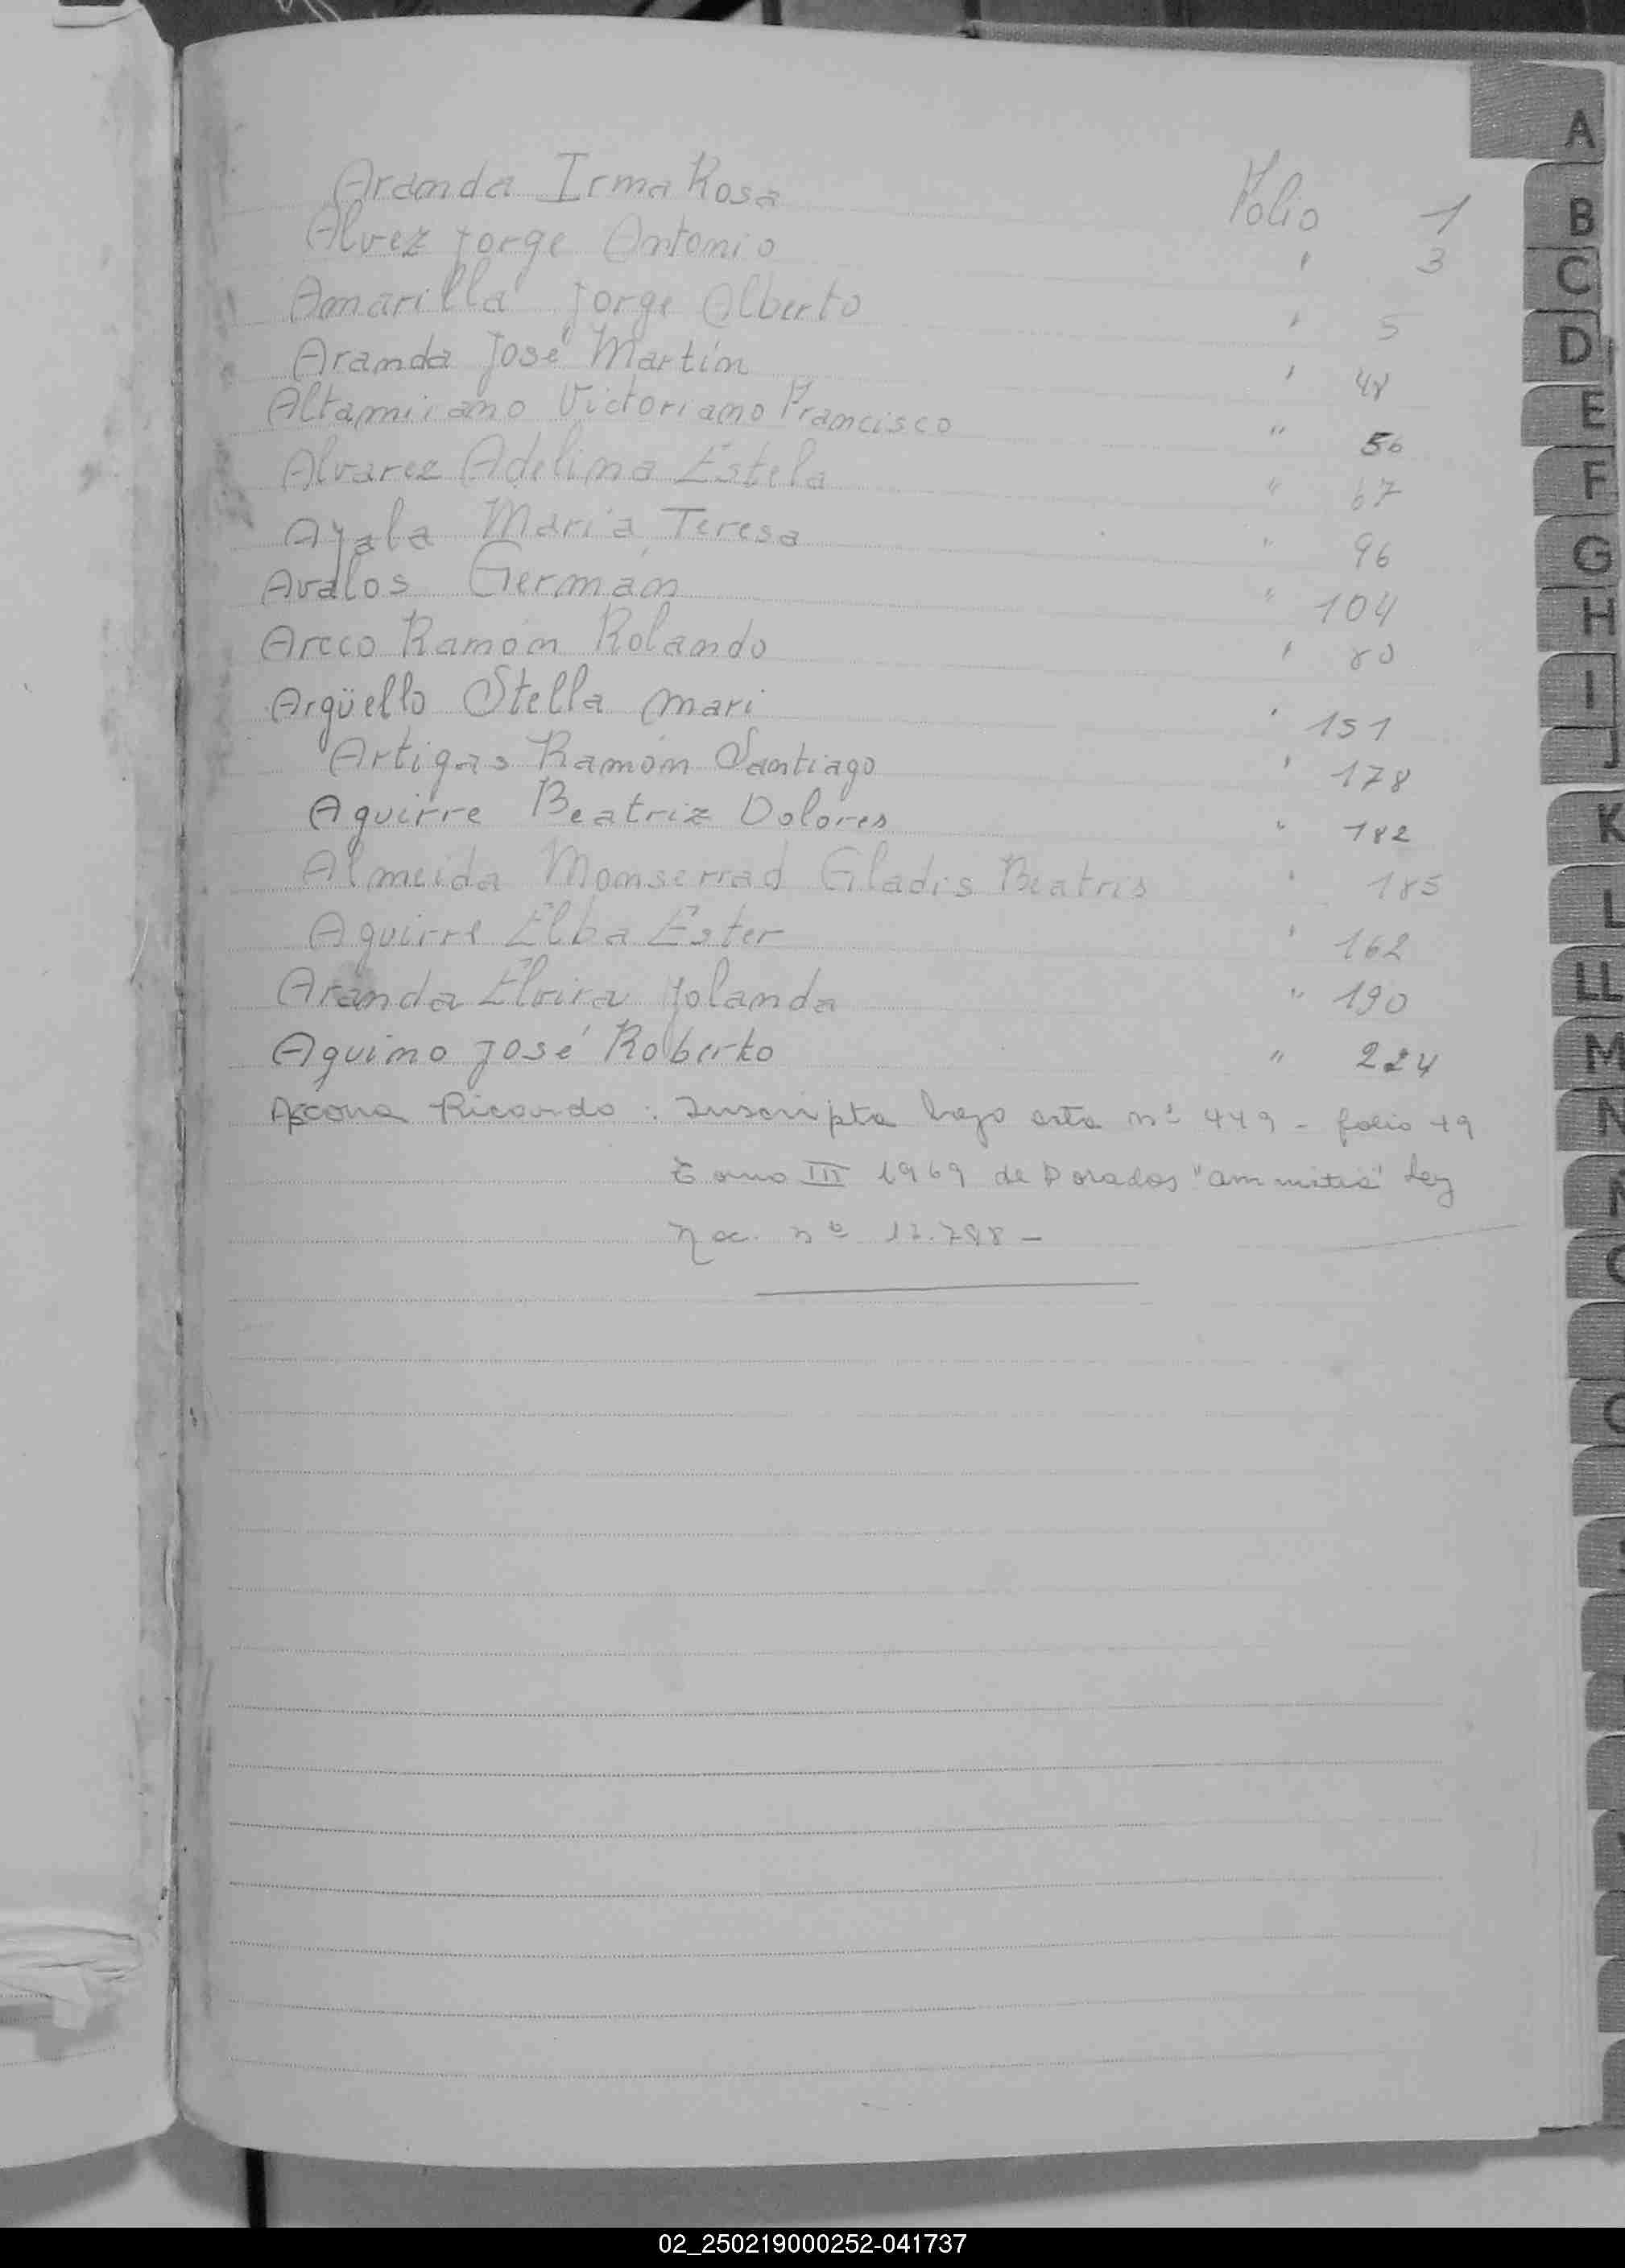 Aranda Irma Rosa Folio 1
Alvez Jorge Antonio " 3
Amarilla Jorge Alberto " 5
Aranda José Martín " 48
Altamirano Victoriano Francisco " 56
Alvarez Adelina Estela " 67
Ayala María Teresa " 96
Avalos Germán " 104
Areco Ramón Rolando " 80
Argüello Stella Mari " 151
Artigas Ramón Santiago " 178
Aguirre Beatriz Dolores " 182
Almeida Monserrad Gladis Beatris " 185
Aguirre Elba Ester " 162
Aranda Elvira Yolanda " 190
Aquino José Roberto " 224
Ricardo : Inscripta bajo acta nº 449 - folio 49
Tomo III 1969 de Posadas "amnistia" Ley
Nac. nº
A
B
C
D
E
F
G
H
I
J
K
L
LL
M
N
Ñ
O
02_250219000252-041737